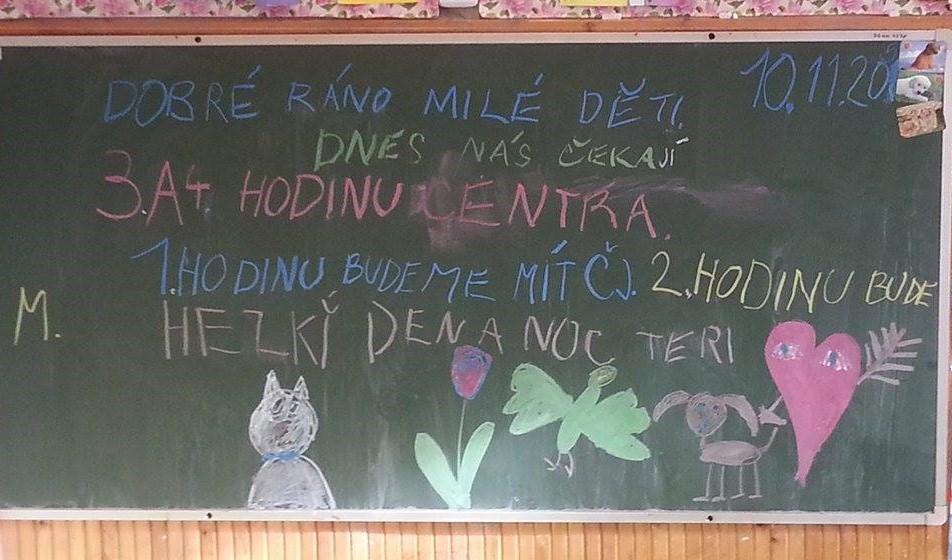 10.11.20
DOBRÉ RÁNO MILÉ DĚTI.
DNES NÁS ČEKAJÍ
3.A4. HODINU CENTRA.
1.HODINU BUDEME MÍT ČJ. 2.HODINU BUDE
M. HEZKÍ DEN A NOC TERI